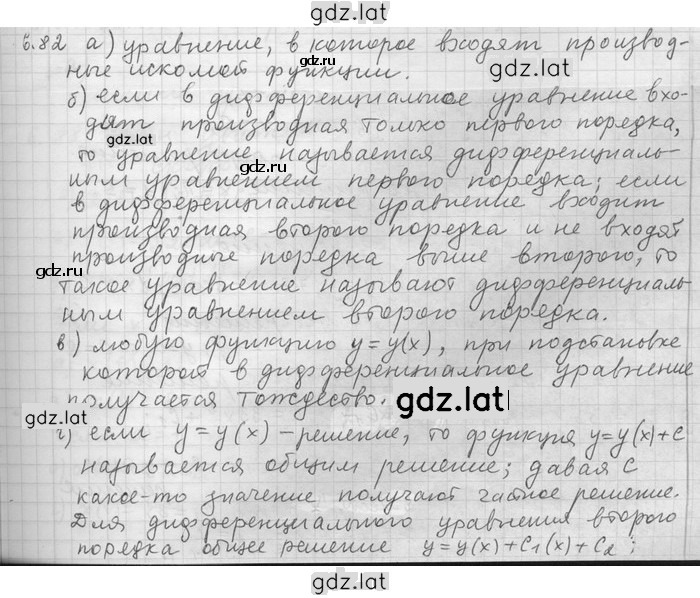 gdz.lat
6.82 а) уравнение, в которое входят производ-
ные искомой функции.
gdz.lat
gdz.ru
б) если в дифференциальное уравнение вхо-
дит производная только первого порядка,
gdz.lat
то уравнение называется дифференциаль-
gdz.ru
ным уравнением первого порядка; если
в дифференциальное уравнение входит
производная второго порядка и не входят
производные порядка выше второго, то
gdz.ru
такое уравнение называют дифференциаль-
ным уравнением второго порядка.
в) любую функцию y=y(x), при подстановке
которой в дифференциальное уравнение
получается тождество.
gdz.lat
gdz.lat
г) если y=y(x) – решение, то функция y=y(x)+C
называется общим решение; давая C
какое-то значение получают частное решение.
Для дифференциального уравнения второго
порядка общее решение y=y(x)+C₁(x)+C₂;
gdz.lat